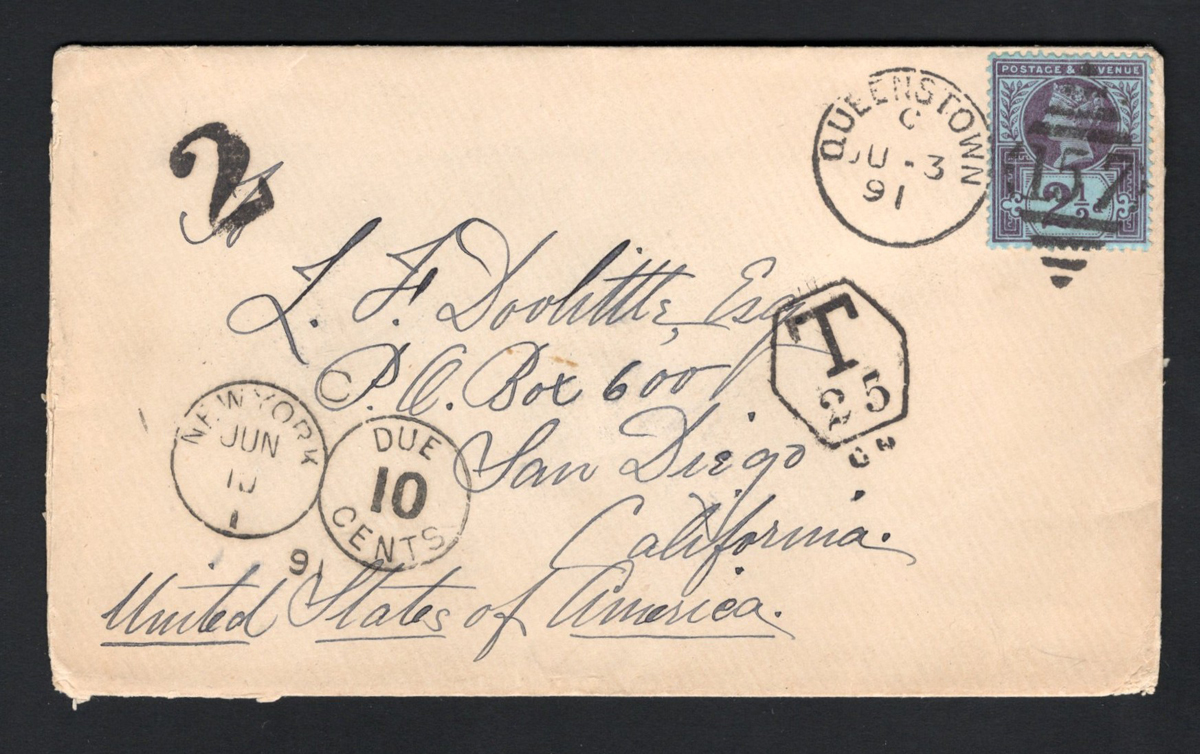 POSTAGE & REVENUE
QUEENSTOWN
C
JU - 3
91
157
2½
2
L. F. Doolittle, Esq
P. O. Box 600
San Diego
California.
United States of America.
T
25
NEW YORK
JUN
10
91
DUE
10
CENTS